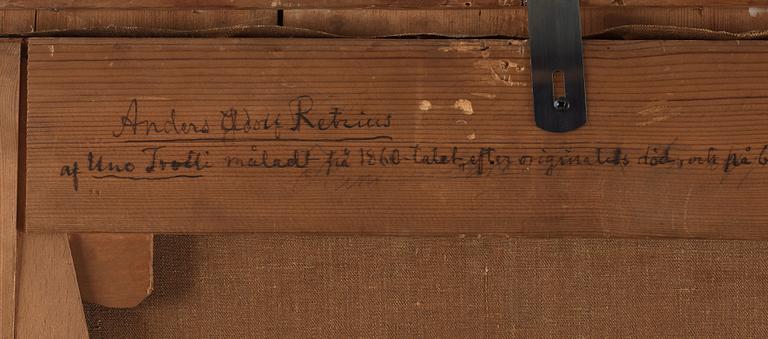 Anders Adolf Retzius
af Uno Troili måladt på 1860-talet, efter originalets död, och på